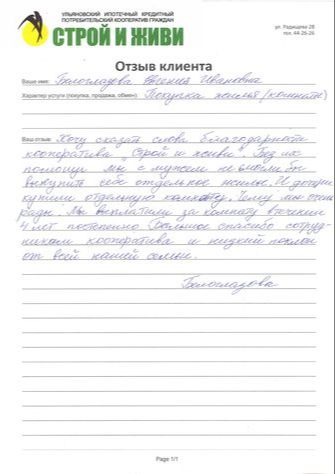 УЛЬЯНОВСКИЙ ИПОТЕЧНЫЙ КРЕДИТНЫЙ
ПОТРЕБИТЕЛЬСКИЙ КООПЕРАТИВ ГРАЖДАН
СТРОЙ И ЖИВИ
ул. Радищева 28
тел. 44-26-26
Отзыв клиента
Ваше имя: Белогладова Евгения Ивановна
Характер услуги (покупка, продажа, обмен): Покупка жилья (комната)
Ваш отзыв: Хочу сказать слова благодарности
кооператива "Строй и живи". Без их
помощи мы с мужем не смогли бы
выкупить себе отдельное жилье. И
купили отдельную комнату. Чему мы очень
рады. Мы выплатили за комнату втечении
4 лет постепенно. Большое спасибо сотруд-
никам кооператива и низкий поклон
от всей нашей семьи.
Белогладова
Page 1/1